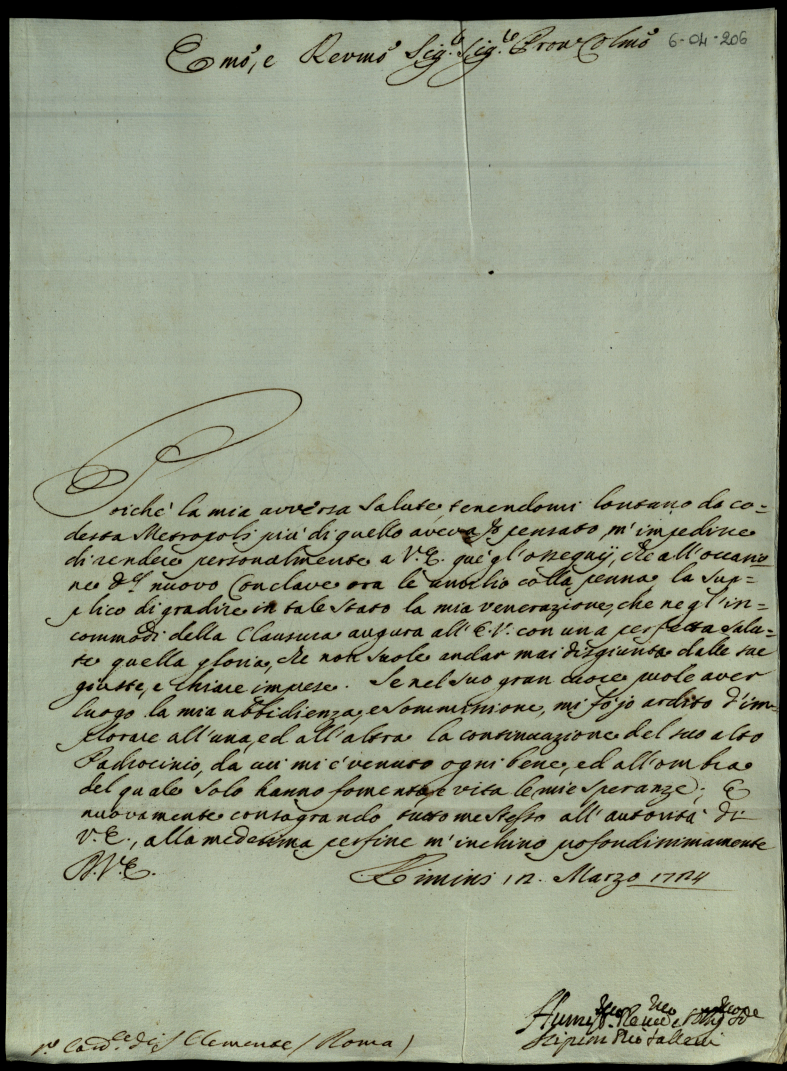 Emo, e Revmo Sigr. Sigr. Prone Colmo 6-04-206
Poiche' la mia avversa salute tenendomi lontano da co=
desta Metropoli più di quello aveva pensato, m'impedisce
di rendere personalmente a V.E. que' gl'ossequij, che all'occasio
ne del nuovo Conclave ora le umilio colla penna, la sup=
plico di gradire in tale stato la mia venerazione, che ne gl'in=
commodi della Clausura augura all'E.V. con una perfetta salu=
te quella gloria, che non suole andar mai disgiunta dalle sue
giuste, e chiare imprese. Se nel suo gran cuore puole aver
luogo la mia ubbidienza, e sommissione, mi fò jo ardito d'im=
plorare all'una, ed all'altra la continuazione del suo alto
Padrocinio, da cui mi è venuto ogni bene, ed all'ombra
del quale solo hanno fomento, e vita le mie speranze; E
nuovamente consagrando tutto me stesso all'autorità di
V.E., alla medesima perfine m'inchino profondissimamente
D.V.E. Rimini 12. Marzo 1724
Humo Devmo
Sr. Cardle di S. Clemente / Roma )